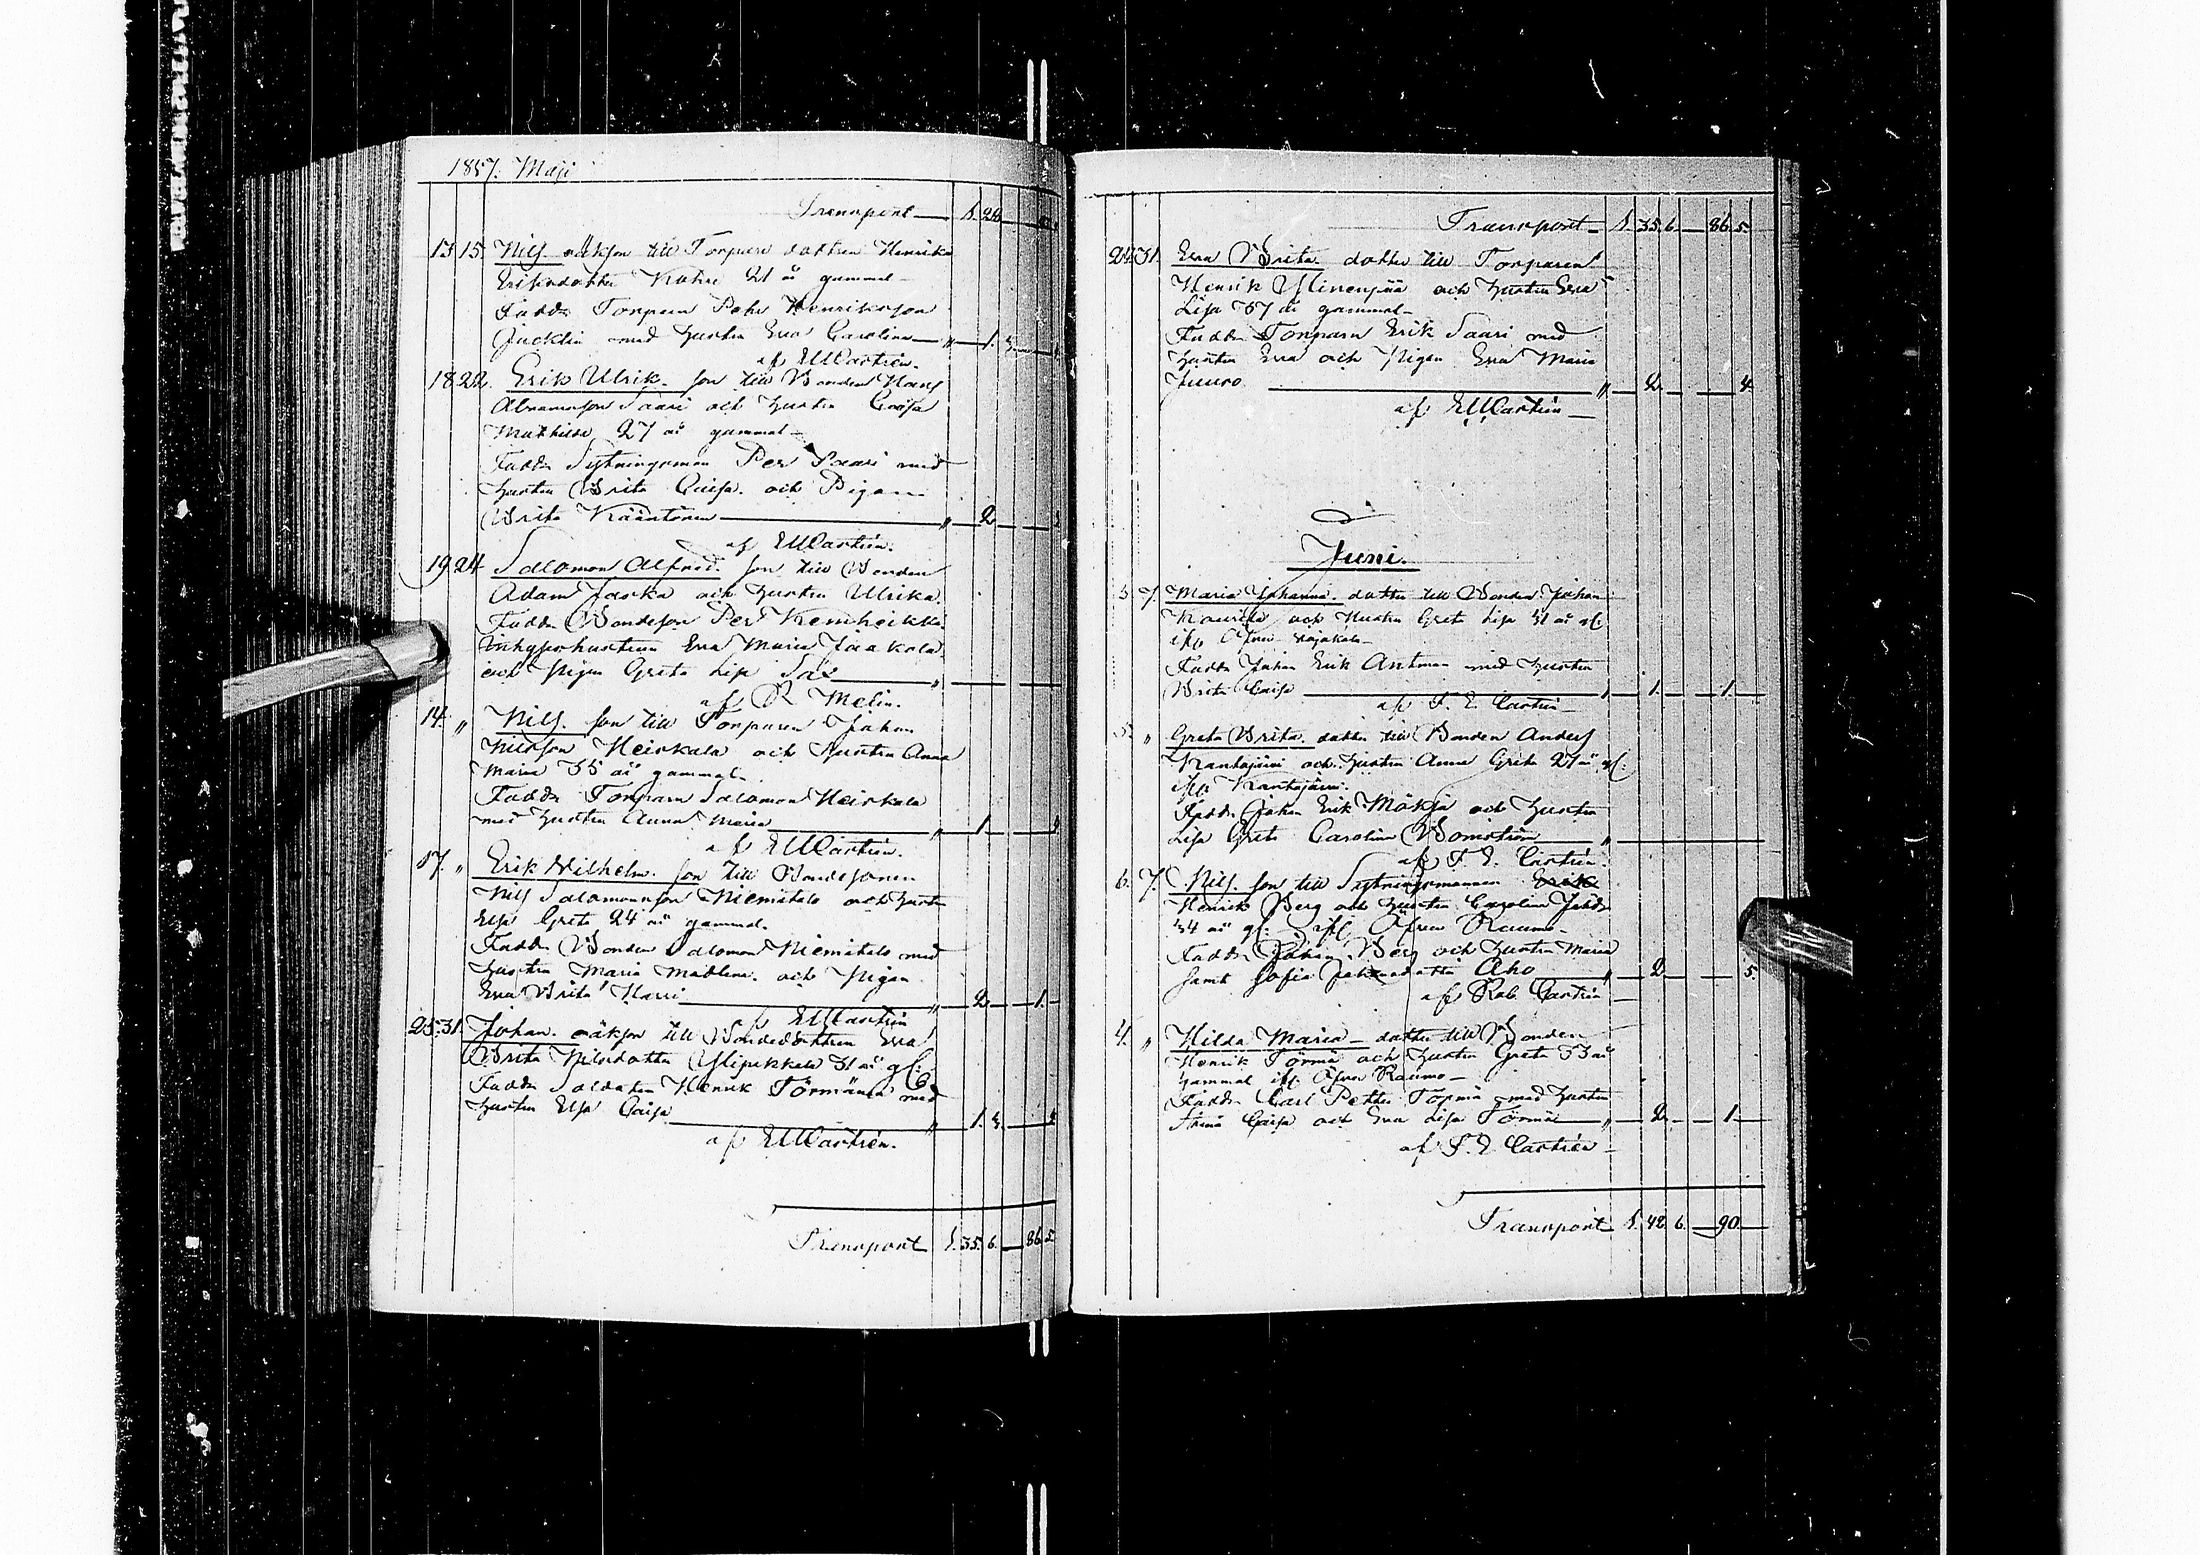 1857. Maji
Transport 1. 28
13 15. Nils oäkson till Torpare dottren Henrika
Eriksdotter 21 år gammal
Faddr Torparen Petr Henriksson
med hustru Eva Carolina " 1.
af EWCastrén.
18 22. Erik Ulrik. son till Bonden Hans
Abramsson Saari och hustru Caisa
Mathilda 27 år gammal
Faddr Sytningsman Per Saari med
hustru Brita Caisa. och Pigan
Brita Kääntönen " 2
af EWCastrén.
19 24 Salomon Alfred. son till Bonden
Adam Jaska och hustru Ulrika.
Faddr Bondeson Per Kemheikki
Inhyseshustrun Eva Maria Jaakola
och Pigan Greta Lisa "
af Melin.
14. " Nils. son till Torparen Johan
Nilsson Heiskala och hustru Anna
Maria 35 år gammal
Faddr Torparen Salomon Heiskala
med hustru Anna Maria " 1.
af EWCastrén.
17. " Erik Wilhelm. son till Bondesonen
Nils Salomonsson Niemitalo och hustru
Elsa Greta 24 år gammal.
Faddr Bonden Salomon Niemitalo med
hustru Maria Madlena. och Pigan
Eva Brita Harri " 2 1.
af EWCastrén
25. 31. Johan. oäkson till Bondedottren Eva
Brita Nilsdotter Ylipekkala 31 år gl:
Faddr Soldaten Henrik Törmänen med
hustru Elsa Caisa " 1. 3.
af EWCastrén.
Transport 1. 35. 6. 86. 5.
Transport 1. 35. 6. 86. 5.
31. Eva Brita dotter till Torparen
Henrik Ylinenpää och hustru Eva
Lisa 37 år gammal
Faddr Torparn Erik Saari med
hustru Eva och Pigan Eva Maria
Juuso " 2 4.
af EWCastrén
Juni.
3. 7. Maria Johanna. dotter till Bonden Johan
och hustru Greta Lisa 31 år gl:
Faddr Johan Erik Antman med hustru
Brita Caisa " 1. 1.
af F. E. Castrén
5. " Greta Brita. dotter till Bonden Anders
Krantajärvi och hustru Anna Greta 27 år gl:
Krantajärvi.
Faddr Johan Erik Mäkjä och hustru
Lisa Greta Carolina Bomström "
af F. E. Castrén.
6. 7. Nils. son till Sytningsmannen Erik
Henrik Berg och hustru Carolina
34 år gl: Öfra Raumo
Faddr Johan Berg och hustru Maria
samt Sofia Johansdotter Aho " 2 5.
af Rob. Castrén
4. " Hilda Maria dotter till Bonden
Henrik Törmä och hustru Greta 33 år
gammal Öfra Raumo
Faddr Carl Petter Törmä med hustru
Caisa och Eva Lisa Törmä " 2 1.
af F. E Castrén
Transport 1. 42 6. 90